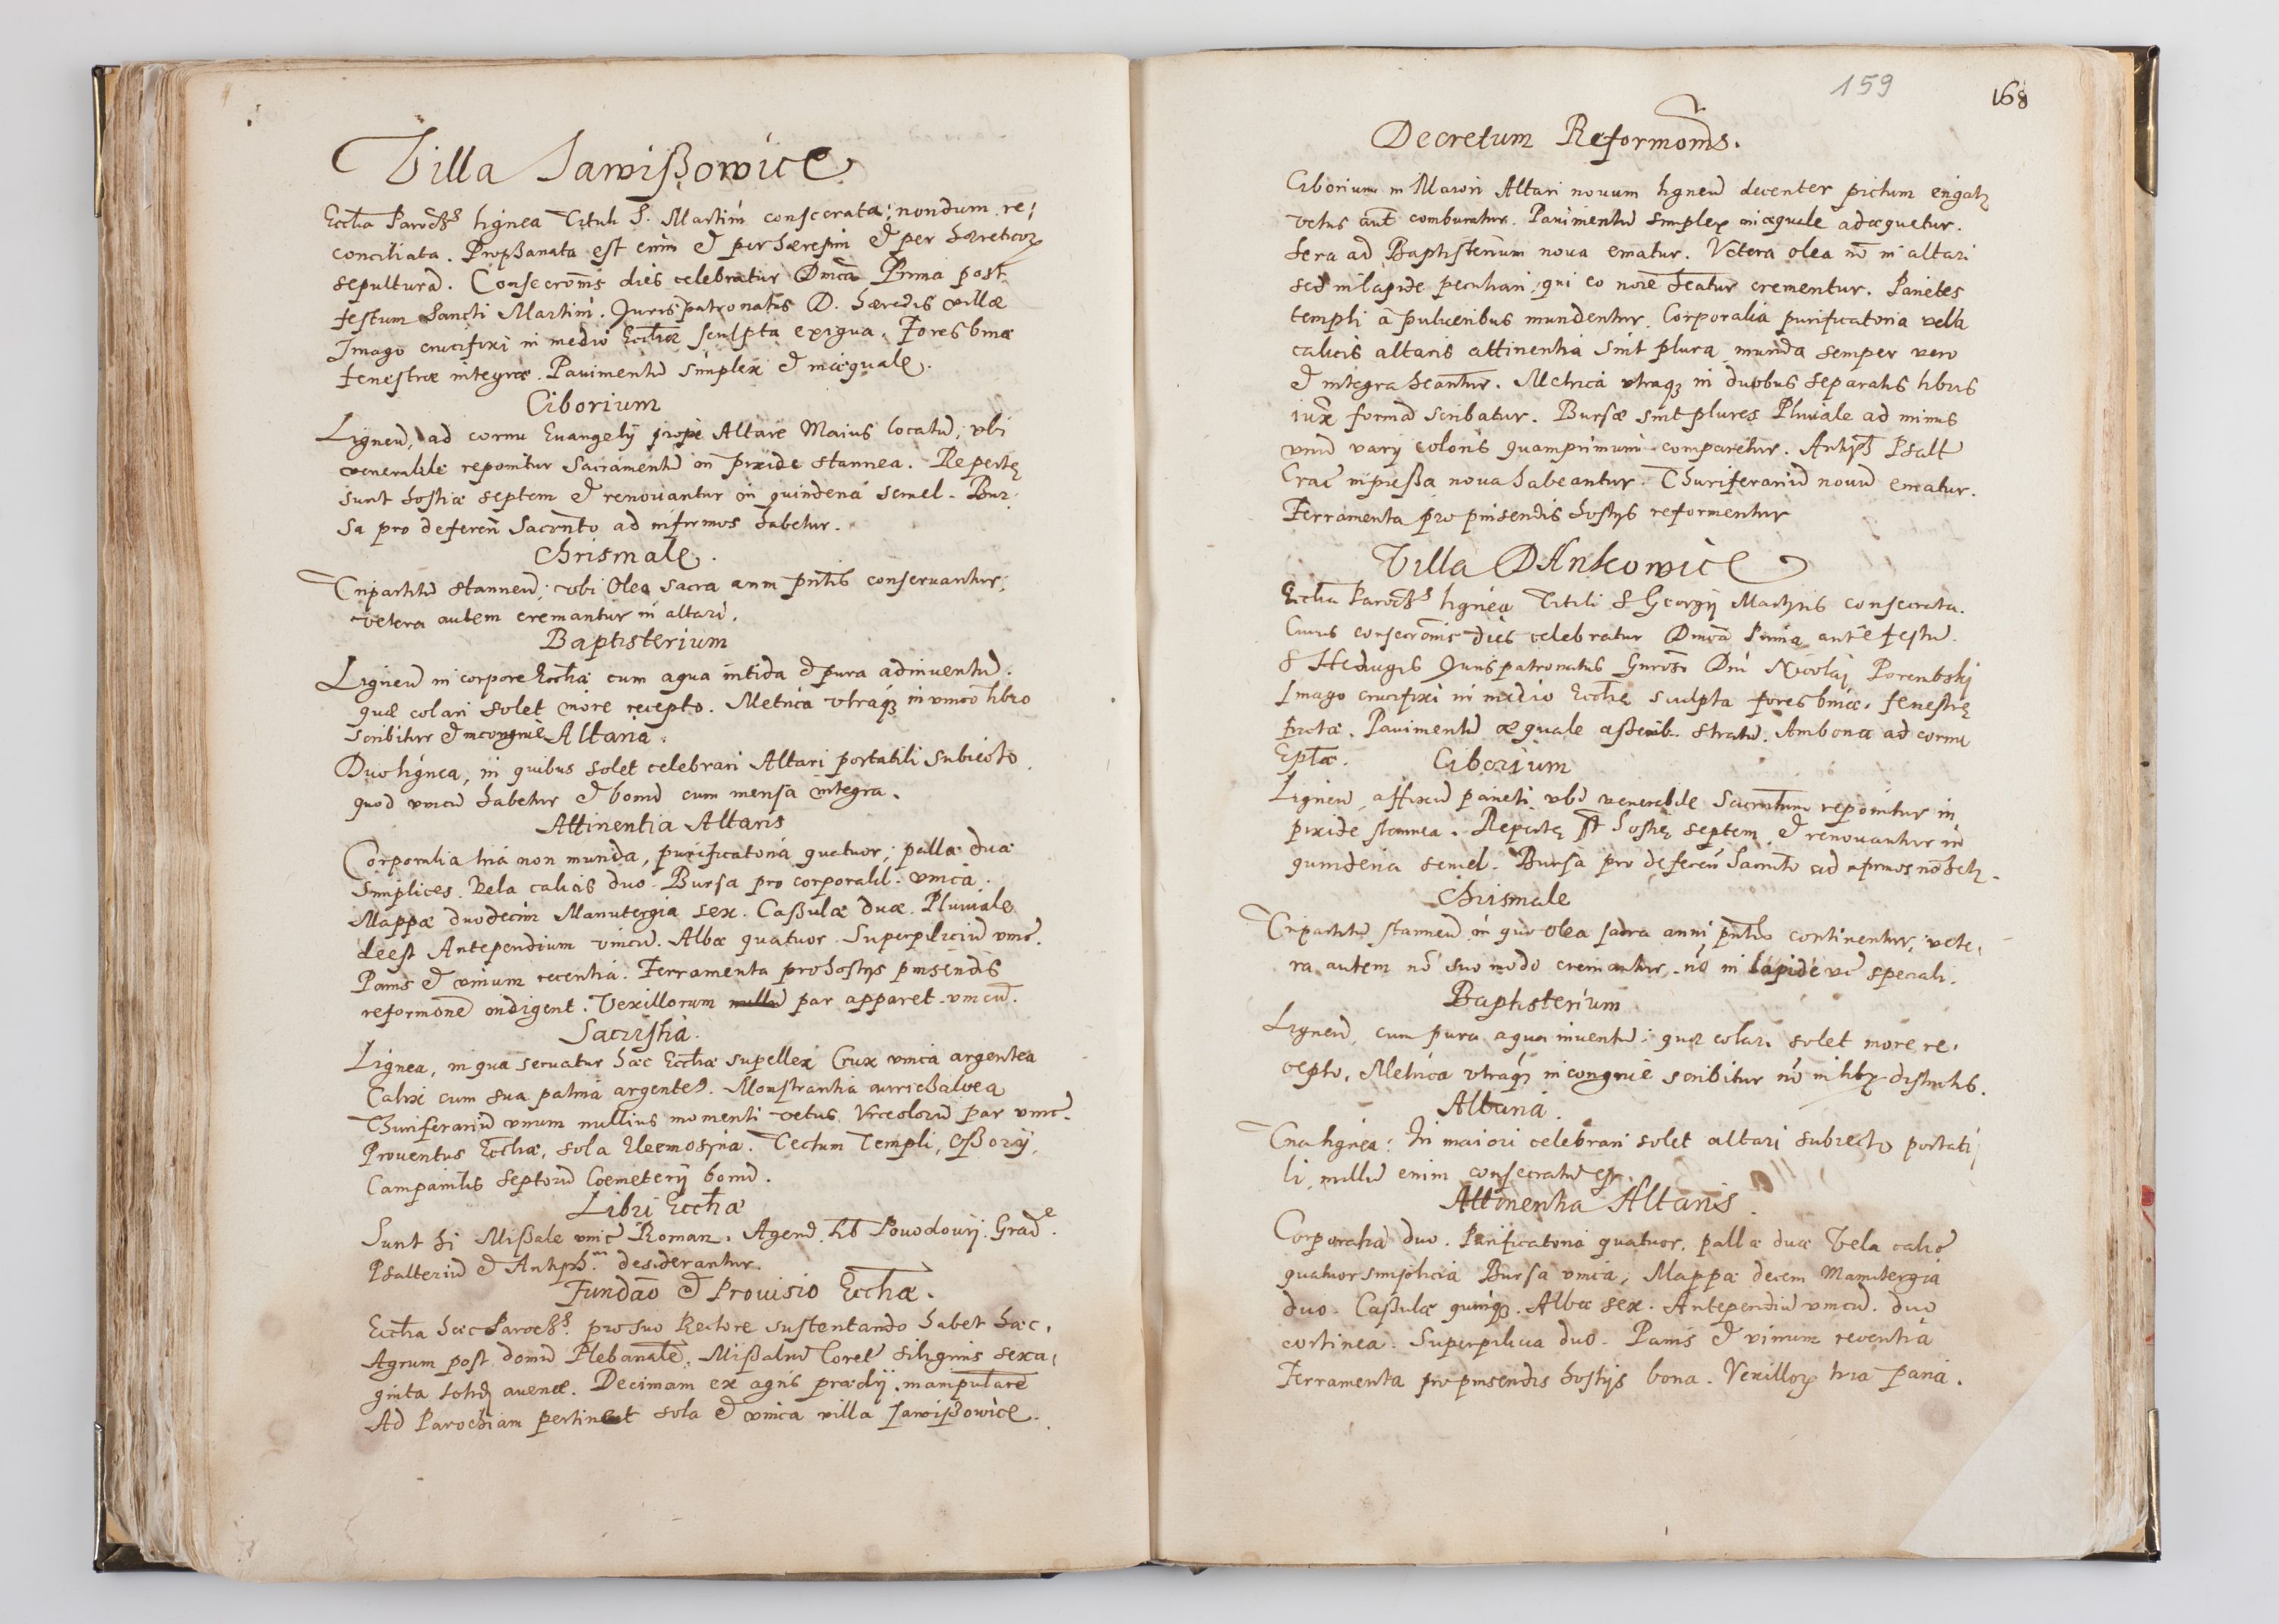 Villa Jawißowice
Ecctia Paroch͠s lignea Tituli S. Martini consecrata; nondum re:
conciliata. Prophanata est enim et per hæresim et per hæreticoꝝ
sepulturā. Consecrōnis dies celebratur Dnica Prima post
festum Sancti Martini. Juris patronatus D. hæredis villæ
Imago crucifixi in medio Ecctiæ sculpta exigua. Fores binæ
fenestræ integræ. Pauimentū simplex et inæquale.
Ciborium
Ligneū, ad cornu Euangelij prope Altare Maius locatū, vbi
venerabile reponitur Sacramentū in pixide stannea. Repertę
sunt hostiæ septem et renouantur in quindena semel. Bur:
sa pro deferen̄ Sacrnto ad infirmos habetur.
Chrismale.
Tripartitū stanneū; vbi Olea sacra anni pn̄tis conseruantur;
vetera autem cremantur in altari.
Baptisterium
Ligneū in corpore Ecctiæ cum aqua nitida et pura adinuentū.
quæ colari solet more recepto. Metrica vtraqꝫ in vnico libro
scribitur et incongruè
Altaria.
Duo lignea, in quibus solet celebrari Altari portatili subiecto
quod vnicū habetur et bonū cum mensa integra.
Attinentia Altaris
Corporalia tria non munda, purificatoria quatuor, pallæ duæ
simplices. Vela calicis duo. Bursa pro corporalib. vnica.
Mappæ duodecim Manutergia sex. Caßulæ duæ. Pluuiale
deest Antependium vnicū. Albæ quatuor. Superpiliciū vnic̄.
Panis et vinum recentia. Ferramenta pro hostijs pinsendis
reformōne indigent. Vexillorum nullū par apparet vnicū.
Sacristia.
Lignea, in qua seruatur hæc Ecctiæ supellex Crux vnica argentea
Calix cum sua patina argenteꝰ. Monstrantia aurichalcea
Thuriferariū vnum nullius momenti vetus. Vrceolorū par vnic̄.
Prouentus Ecctiæ, sola Eleemosyna. Tectum Templi, Oßorij,
Campanilis septorū Coemeterij bonū.
Libri Ecctiæ
Sunt hi Mißale vnic̄ Roman. Agend. lib Powodowij. Grad̄e.
Psalteriū et Antiph.m desiderantur.
Fundaō et Prouisio Ecctiæ.
Ecctia hæc Paroch͠s. pro suo Rectore sustentando habet hæc.
Agrum post domū Plebanalē. Mißaliū Coret̄ siliginis sexa:
ginta totiđ auenæ. Decimam ex agris prædij manipularē
Ad Parochiam pertinet sola et vnica villa Jawißowice.
159
168
Decretum Reformōnis.
Ciborium in Maiori Altari nouum ligneū decenter pictum erigatꝛ
vetus aūt comburatur. Pauimentū simplex inæquale adæquetur.
Sera ad Baptisterium noua ematur. Vetera olea nō in altari
sed in lapide peculiari, qui eo noīe heatur crementur. Parietes
templi à pulueribus mundentur. Corporalia purificatoria vela
calicis altaris attinentia sint plura munda semper vero
et integra heantur. Metrica vtraqꝫ in duobus separatis libris
iux̄ formā scribatur. Bursæ sint plures Pluuiale ad minus
vnū varij coloris quamprimum comparetur. Antiph̄ Psalt̄
Crac̄ impreßa noua habeantur. Thuriferariū nouū ematur.
Ferramenta pro pinsendis hostijs reformentur
Villa DAnkowice
Ecctia Paroch͠s lignea Tituli S Georgij Martyris consecrata.
Cuius consecrōnis dies celebratur Dnica Prima ante festū
S Hedugis Juris patronatus Gnrosi Dni Nicolaj Porembskj
Imago crucifixi in medio Ecctię sculpta fores binæ. fenestrę
fractæ. Pauimentū æquale aßerib. stratū. Ambona ad cornu
Eptæ.
Ciborium
Ligneū affixū parieti vbi venerabile Sacrntum reponitur in
pixide stannea. Repertę st hostię septem et renouantur in
quindena semel. Bursa pro deferen̄ Sacrnto ad infirmos nō hetꝛ.
Chrismale
Tripartitū stanneū in quo olea sacra anni pn̄tis continentur; vete:
ra autem nō suo modo cremantur nō in lapide vc̄ speciali.
Baptisterium
Ligneū cum pura aqua inuentū; quæ colari solet more re:
cepto. Metrica vtraqꝫ incongruè scribitur nō in libꝝ distinctis.
Altaria.
Tria lignea: In maiori celebrari solet altari subiecto portati:
li, nullū enim consecratū est.
Attinentia Altaris
Corporalia duo. Purificatoria quatuor, pallæ duæ Vela calic̄
quatuor simplicia Bursa vnica, Mappæ decem Manutergia
duo. Caßulæ quinqꝫ. Albæ sex. Antependiū vnicū. duo
cortinea. Superpilicia duo. Panis et vinum recentia
Ferramenta pro pinsendis hostijs bona. Vexilloꝝ tria paria.